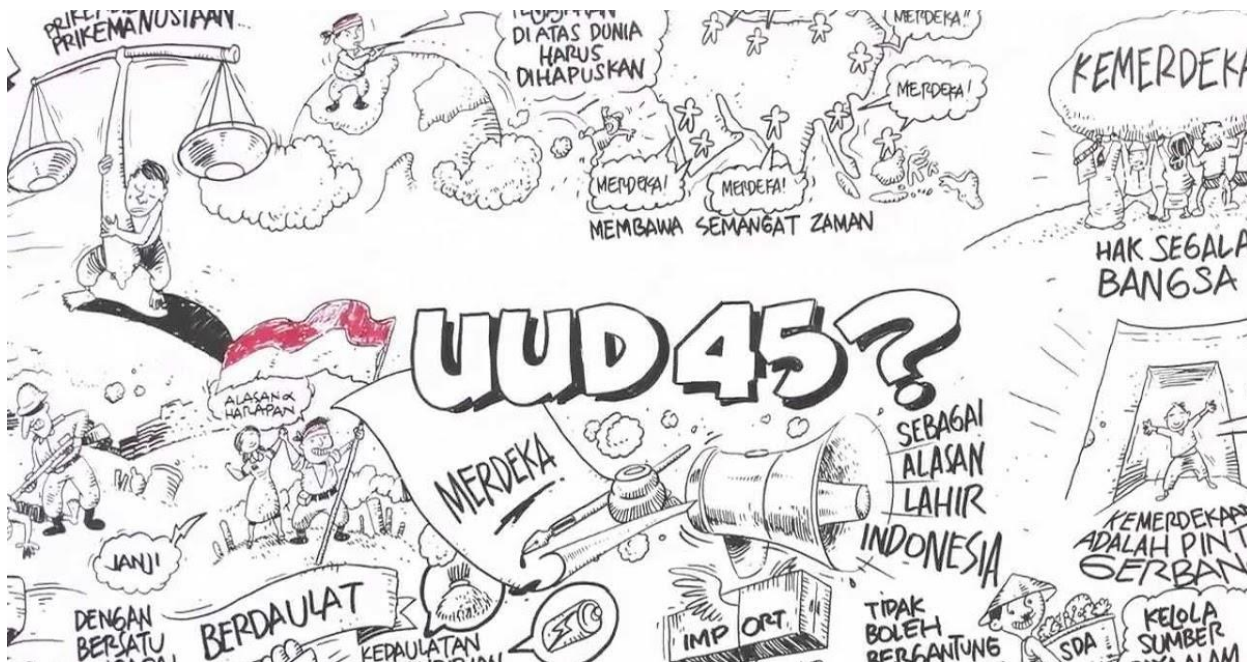 PRIKEMANUSIAAN...
DI ATAS DUNIA
HARUS
DIHAPUSKAN
MERDEKA!!
MERDEKA!
MERDEKA!
MERDEKA!
MEMBAWA SEMANGAT ZAMAN
KEMERDEKA
HAK SEGALA
BANGSA
UUD 45?
ALASAN &
HARAPAN
MERDEKA
SEBAGAI
ALASAN
LAHIR
INDONESIA
KEMERDEKAA
ADALAH PINT
GERBAN
JANJI
DENGAN
BERSATU
BERDAULAT
KEDAULATAN
IMPORT
TIDAK
BOLEH
BERGANTUNG
SDA
KELOLA
SUMBER